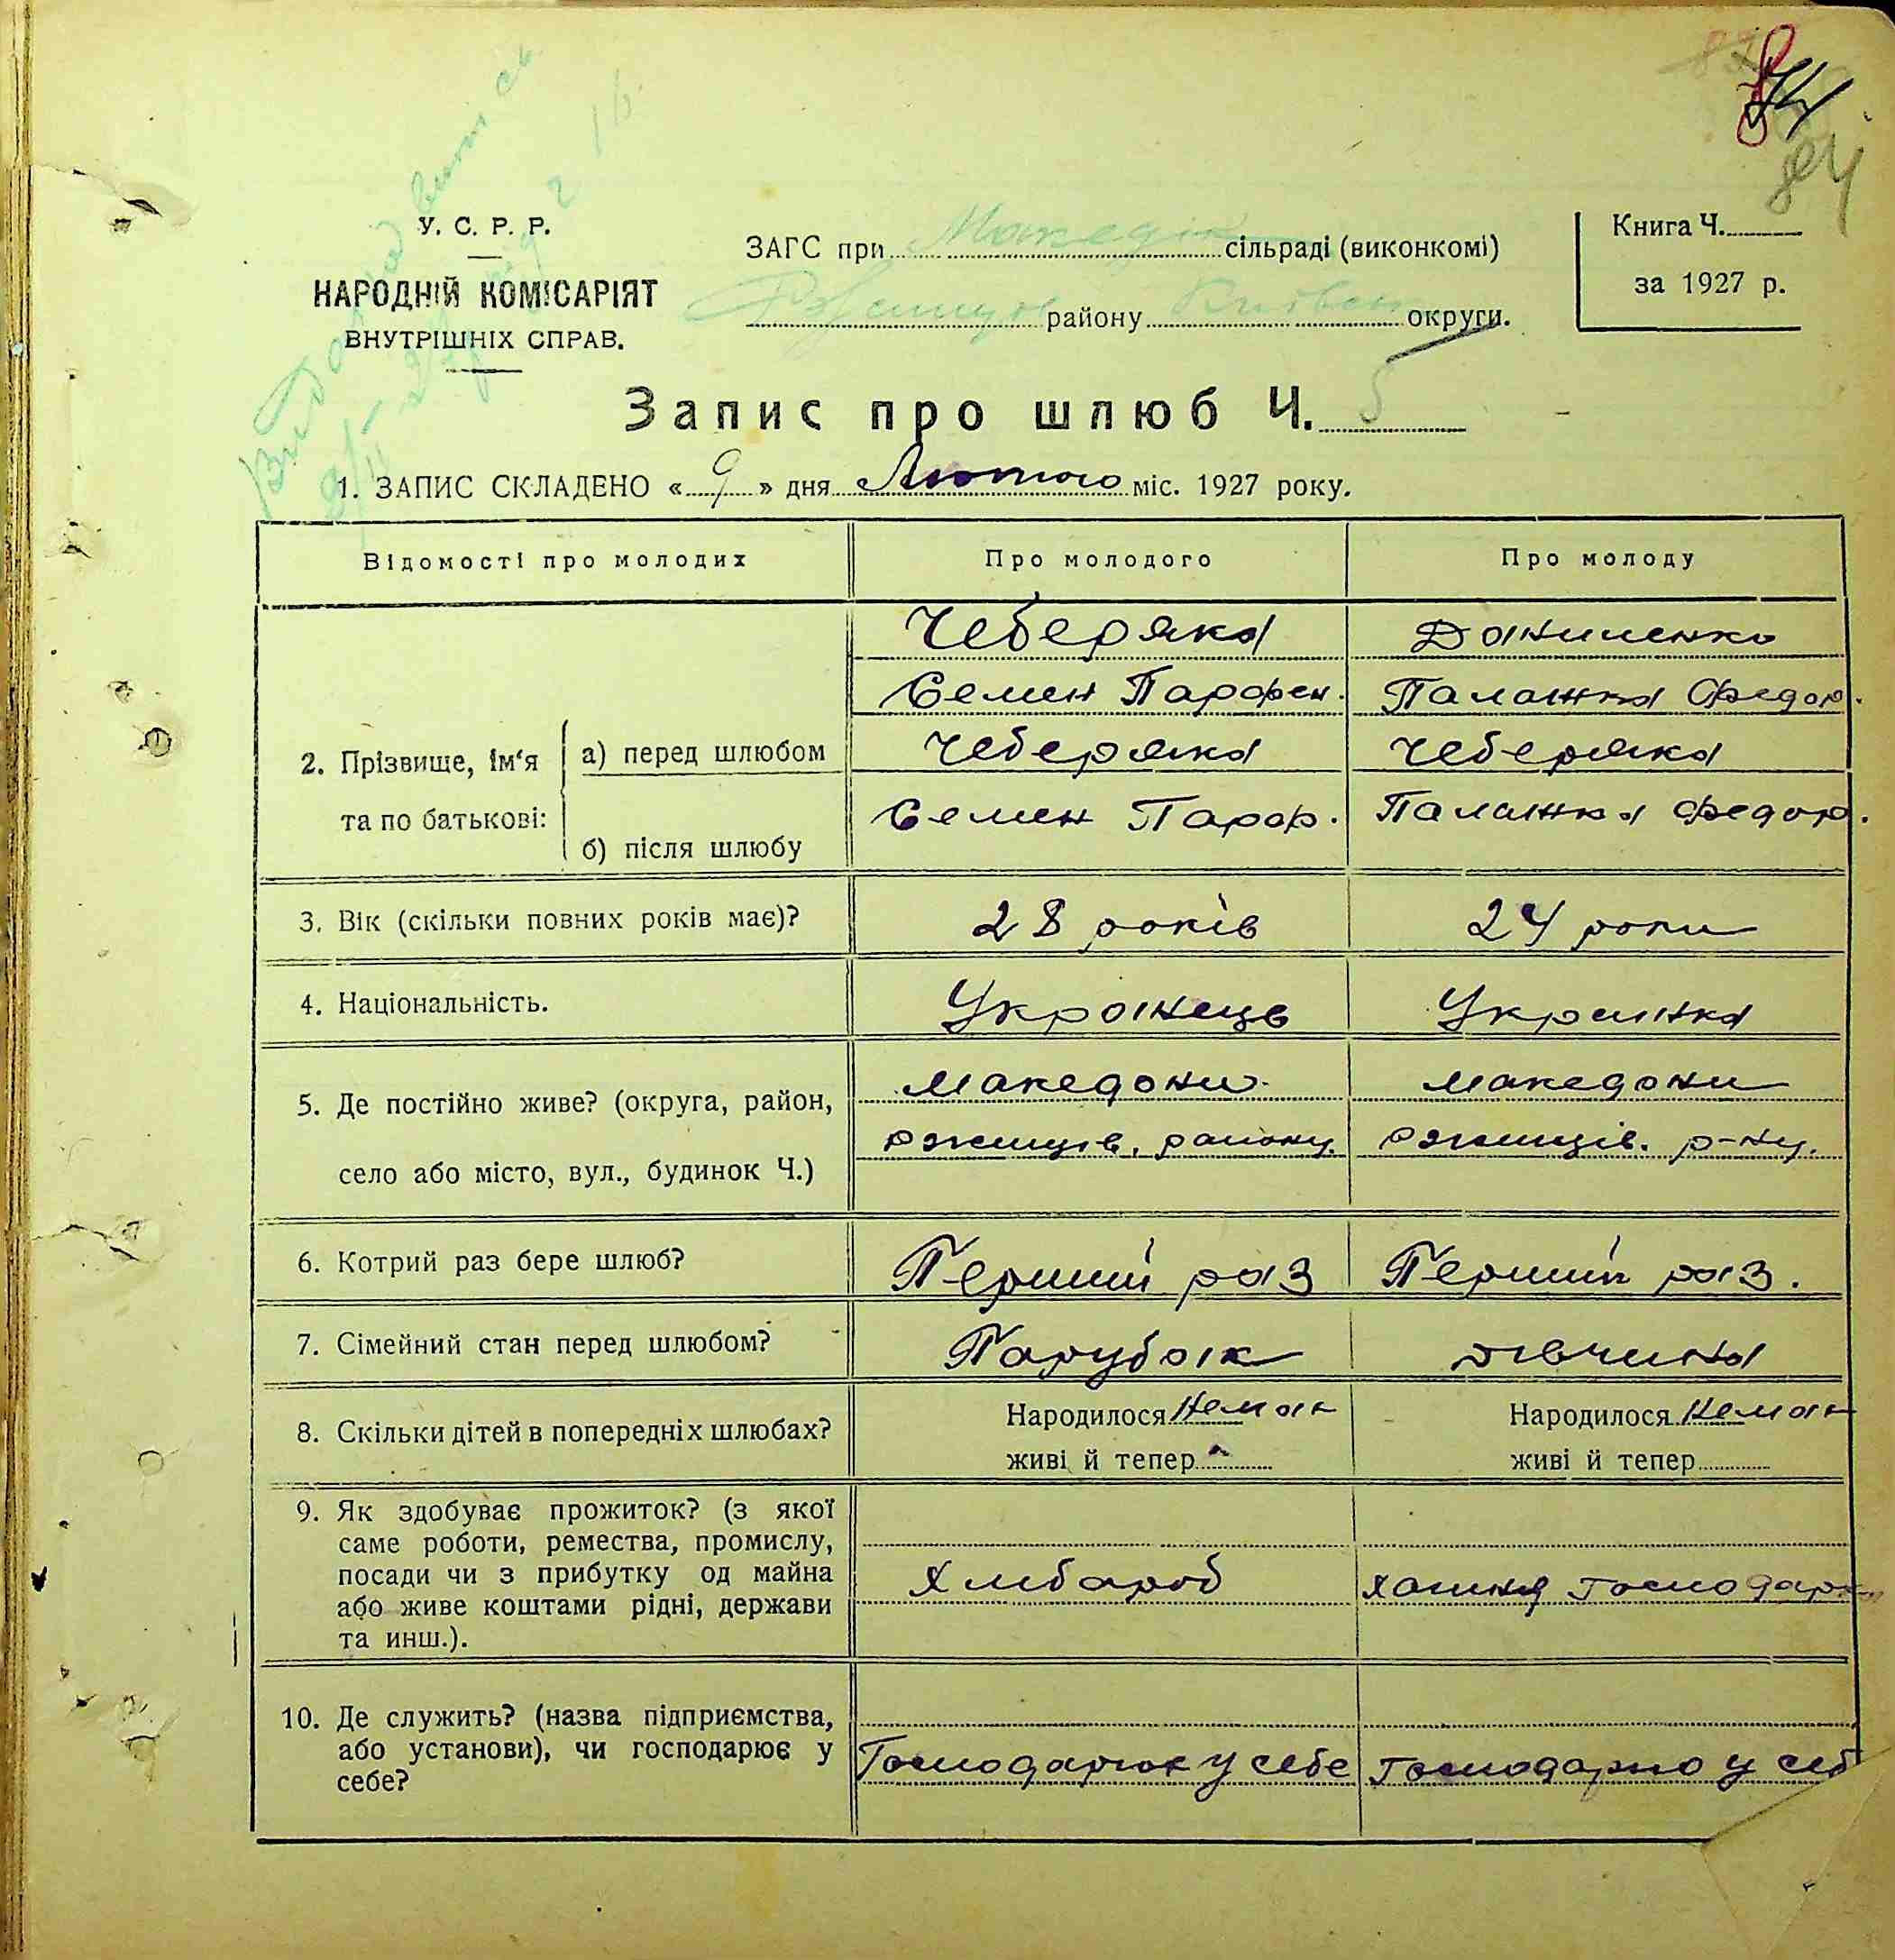 У. С. Р. Р.
НАРОДНІЙ КОМІСАРІЯТ
ВНУТРІШНІХ СПРАВ.
ЗАГС при сільраді (виконкомі)
району округи.
Книга Ч.
за 1927 р.
84
Запис про шлюб Ч. 5
1. ЗАПИС СКЛАДЕНО « 9 » дня Лютого міс. 1927 року.
Відомості про молодих Про молодого Про молоду
2. Прізвище, ім'я та по батькові:
а) перед шлюбом
Чеберяка Даниленко
Семен Парфен. Палажка Федор.
б) після шлюбу
Чеберяка Чеберяка
Семен Парф. Палажка Федор.
3. Вік (скільки повних років має)? 28 років 24 роки
4. Національність. Українець Українка
5. Де постійно живе? (округа, район,
село або місто, вул., будинок Ч.)
Македони Македони
ржищів. району. ржищів. р-ну.
6. Котрий раз бере шлюб? Перший раз Перший раз.
7. Сімейний стан перед шлюбом? Парубок дівчина
8. Скільки дітей в попередніх шлюбах? Народилося Народилося
живі й тепер живі й тепер
9. Як здобуває прожиток? (з якої
саме роботи, ремества, промислу,
посади чи з прибутку од майна
або живе коштами рідні, держави
та инш.).
Хлібароб хатня господарк
10. Де служить? (назва підприємства,
або установи), чи господарює у
себе?
Господарює у себе Господарює у себ